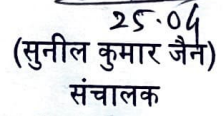 25.04
(सुनील कुमार जैन)
संचालक